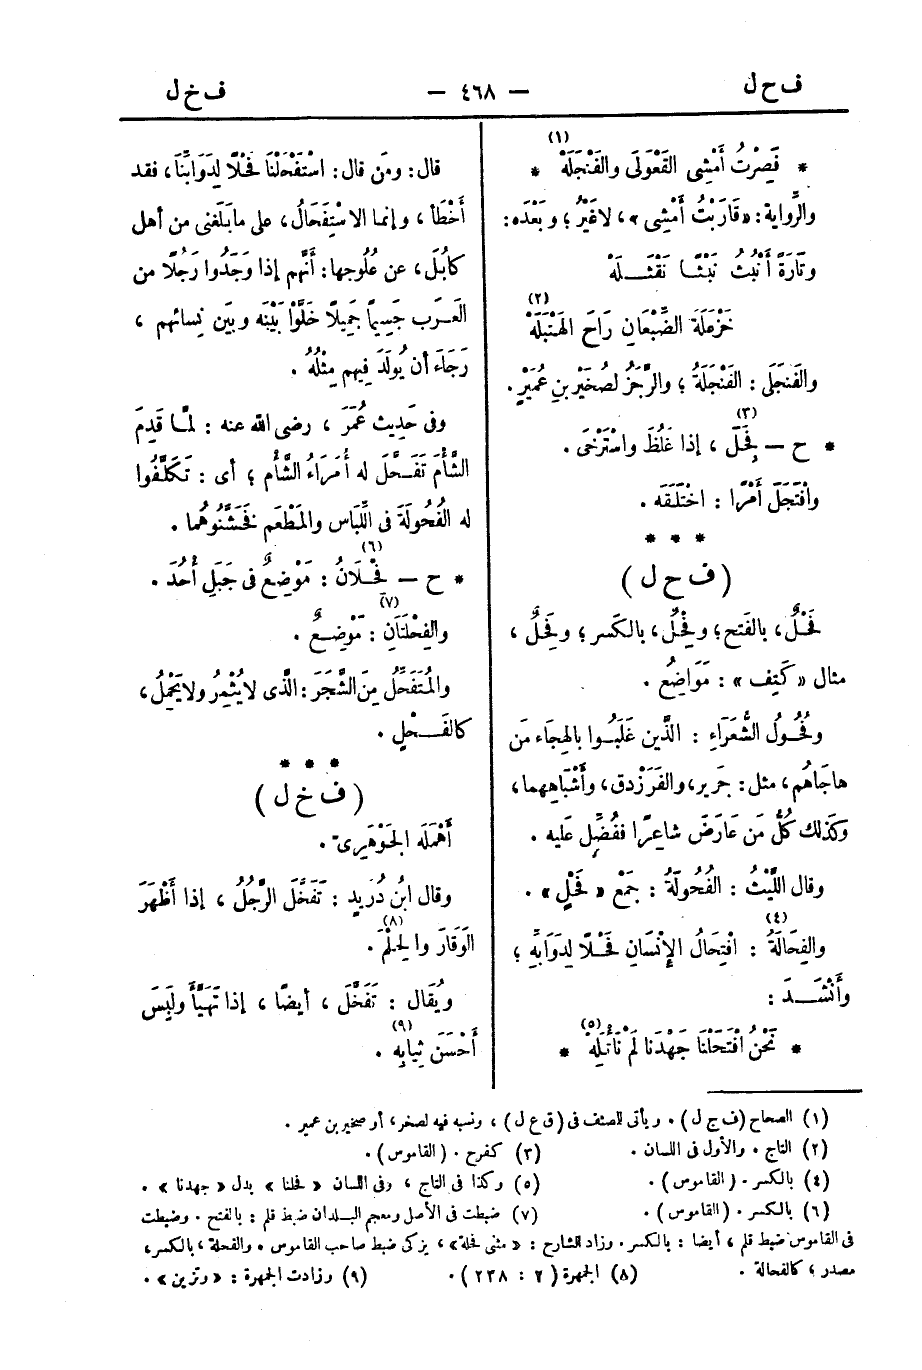 ف ح ل
— ٤٦٨ —
ف خ ل
(١)
* فَصِرْتُ أَمْشِى القَعْوَلَى والفَنْجَلَهْ *
والرِّواية: «قَارَبْتُ أَمْشِى»، لاغَيْرُ؛ وبَعْدَه:
وتَارَةً أَنْبُثُ نَبْثًا نَقْثَلَهْ
(٢)
خَزْعَلَةَ الضِّبْعَانِ رَاحَ الهَنْبَلَهْ
والفَنجَلَى: الفَنْجَلَةُ؛ والرَّجَزُ لصُخَيْرِ بنِ عُمَيْرٍ.
(٣)
* ح — فَجِلَ، إذا غَلُظَ واسْتَرْخَى.
وافْتَجَلَ أَمْرًا: اخْتَلَقَه.
* * *
(ف ح ل)
فَحْلٌ، بالفَتح؛ وفِحْلٌ، بالكَسر؛ وفَحِلٌ،
مثال «كَتِف»: مَوَاضِعُ.
وفُحُولُ الشُّعَرَاءِ: الَّذين غَلَبُوا بالهِجَاء مَن
هاجَاهُم، مثل: جَرِير، والفَرَزدق، وأَشْبَاهِهما،
وكَذلك كُلُّ مَن عَارَضَ شاعِرًا ففُضِّل عَلَيه.
وقال اللَّيْثُ: الفُحُولَةُ: جَمْع «فَحْلٍ».
(٤)
والفِحَالَةُ: افْتِحَالُ الإِنْسَانِ فَحْلًا لِدَوَابِّهِ؛
وأَنْشَدَ:
(٥)
* نَحْنُ افْتَحَلْنَا جَهْدَنَا لَمْ نَأْتَلِهْ *
قال: ومَن قال: اسْتَفْحَلْنَا فَحْلًا لِدَوَابِّنَا، فقد
أَخْطَأَ، وإنما الاسْتِفْحَالُ، على مابَلَغَنى من أهل
كابُلَ، عن عُلُوجها: أَنَّهم إذا وَجَدُوا رَجُلًا من
العَرَب جَسِيمًا جَمِيلًا خَلَّوْا بَيْنَه وبَيْن نِسائهم،
رَجَاءَ أن يُولَدَ فِيهم مِثْلُهُ.
وفى حَدِيث عُمَرَ، رضى الله عنه: لمَّا قَدِمَ
الشَّأْمَ تَفَحَّلَ له أُمَرَاءُ الشَّأْم؛ أى: تَكَلَّفُوا
له الفُحُولَةَ فى اللِّبَاس والمَطْعَم فخَشَّنُوهُما.
(٦)
* ح — فِحْلَانُ: مَوْضِعٌ فى جَبَلِ أُحُدَ.
(٧)
والفِحْلَتَانِ: مَوْضِعٌ.
والمُتَفَحِّلُ مِنَ الشَّجَرَ: الَّذى لا يُثْمِرُ ولا يَحْمِلُ،
كالفَحْلِ.
* * *
(ف خ ل)
أَهْمَلَه الجَوْهَرِىّ.
وقال ابنُ دُرَيد: تَفَخَّلَ الرَّجُلُ، إذا أَظْهَرَ
(٨)
الوَقَارَ والحِلْمَ.
ويُقَال: تَفَخَّلَ، أيضًا، إذا تَهَيَّأَ ولَبِسَ
(٩)
أَحْسَنَ ثِيَابِه.
(١) الصحاح (ف ج ل). ويأتى للصنف فى (ق ع ل)، ونسبه فيه لصخر، أو صخير بن عمير.
(٢) التاج. والأول فى اللسان. (٣) كفرح. (القاموس).
(٤) بالكسر. (القاموس). (٥) وكذا فى التاج، وفى اللسان «فحلنا» بدل «جهدنا».
(٦) بالكسر. (القاموس). (٧) ضبطت فى الأصل ومعجم البلدان ضبط قلم: بالفتح. وضبطت
فى القاموس ضبط قلم، أيضا: بالكسر. وزاد الشارح: «مثنى فحلة»، يزكى ضبط صاحب القاموس. والفحلة، بالكسر،
مصدر، كالفحالة. (٨) الجمهرة (٢: ٢٣٨). (٩) وزادت الجمهرة: «وتزين».